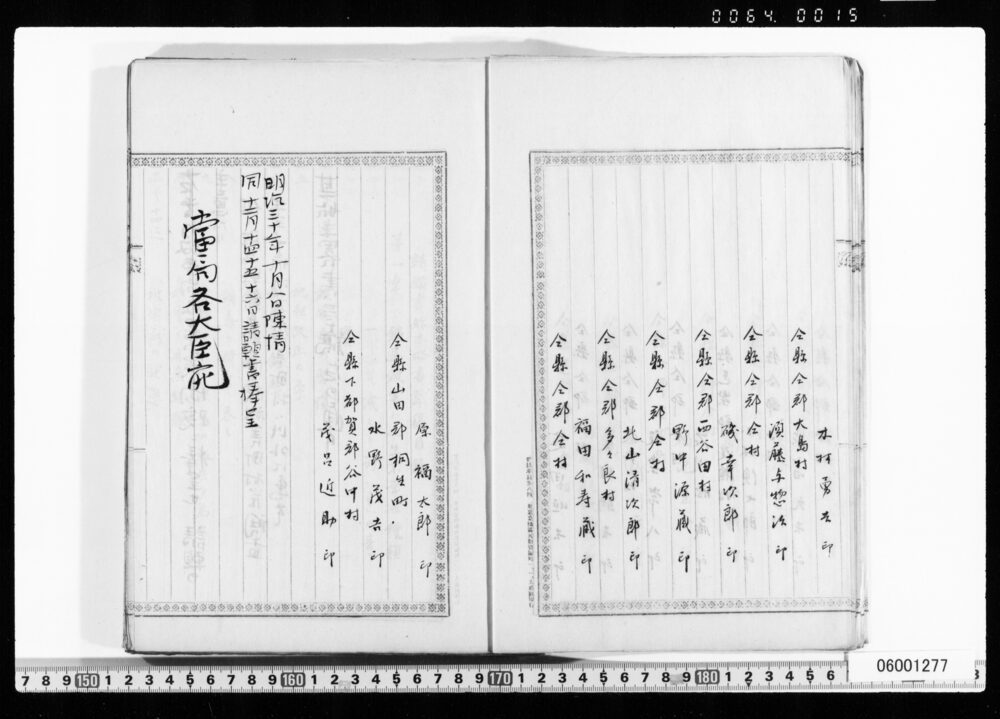 0064.0015
木村勇吉 印
仝縣仝郡大島村
須藤与惣次 印
仝縣仝郡仝村
磯幸次郎 印
仝縣仝郡西谷田村
野中源蔵 印
仝縣仝郡仝村
北山清次郎 印
仝縣仝郡多々良村
福田和寿蔵 印
仝縣仝郡仝村
原福太郎 印
仝縣山田郡桐生町
水野茂吉 印
仝縣下都賀郡谷中村
茂呂近助 印
明治三十年十月 陳情
同十二月十四十五十六日請 書捧呈
當局各大臣宛
7 8 9 150 1 2 3 4 5 6 7 8 9 160 1 2 3 4 5 6 7 8 9 170 1 2 3 4 5 6 7 8 9 180 1 2 3 4 5 6
06001277